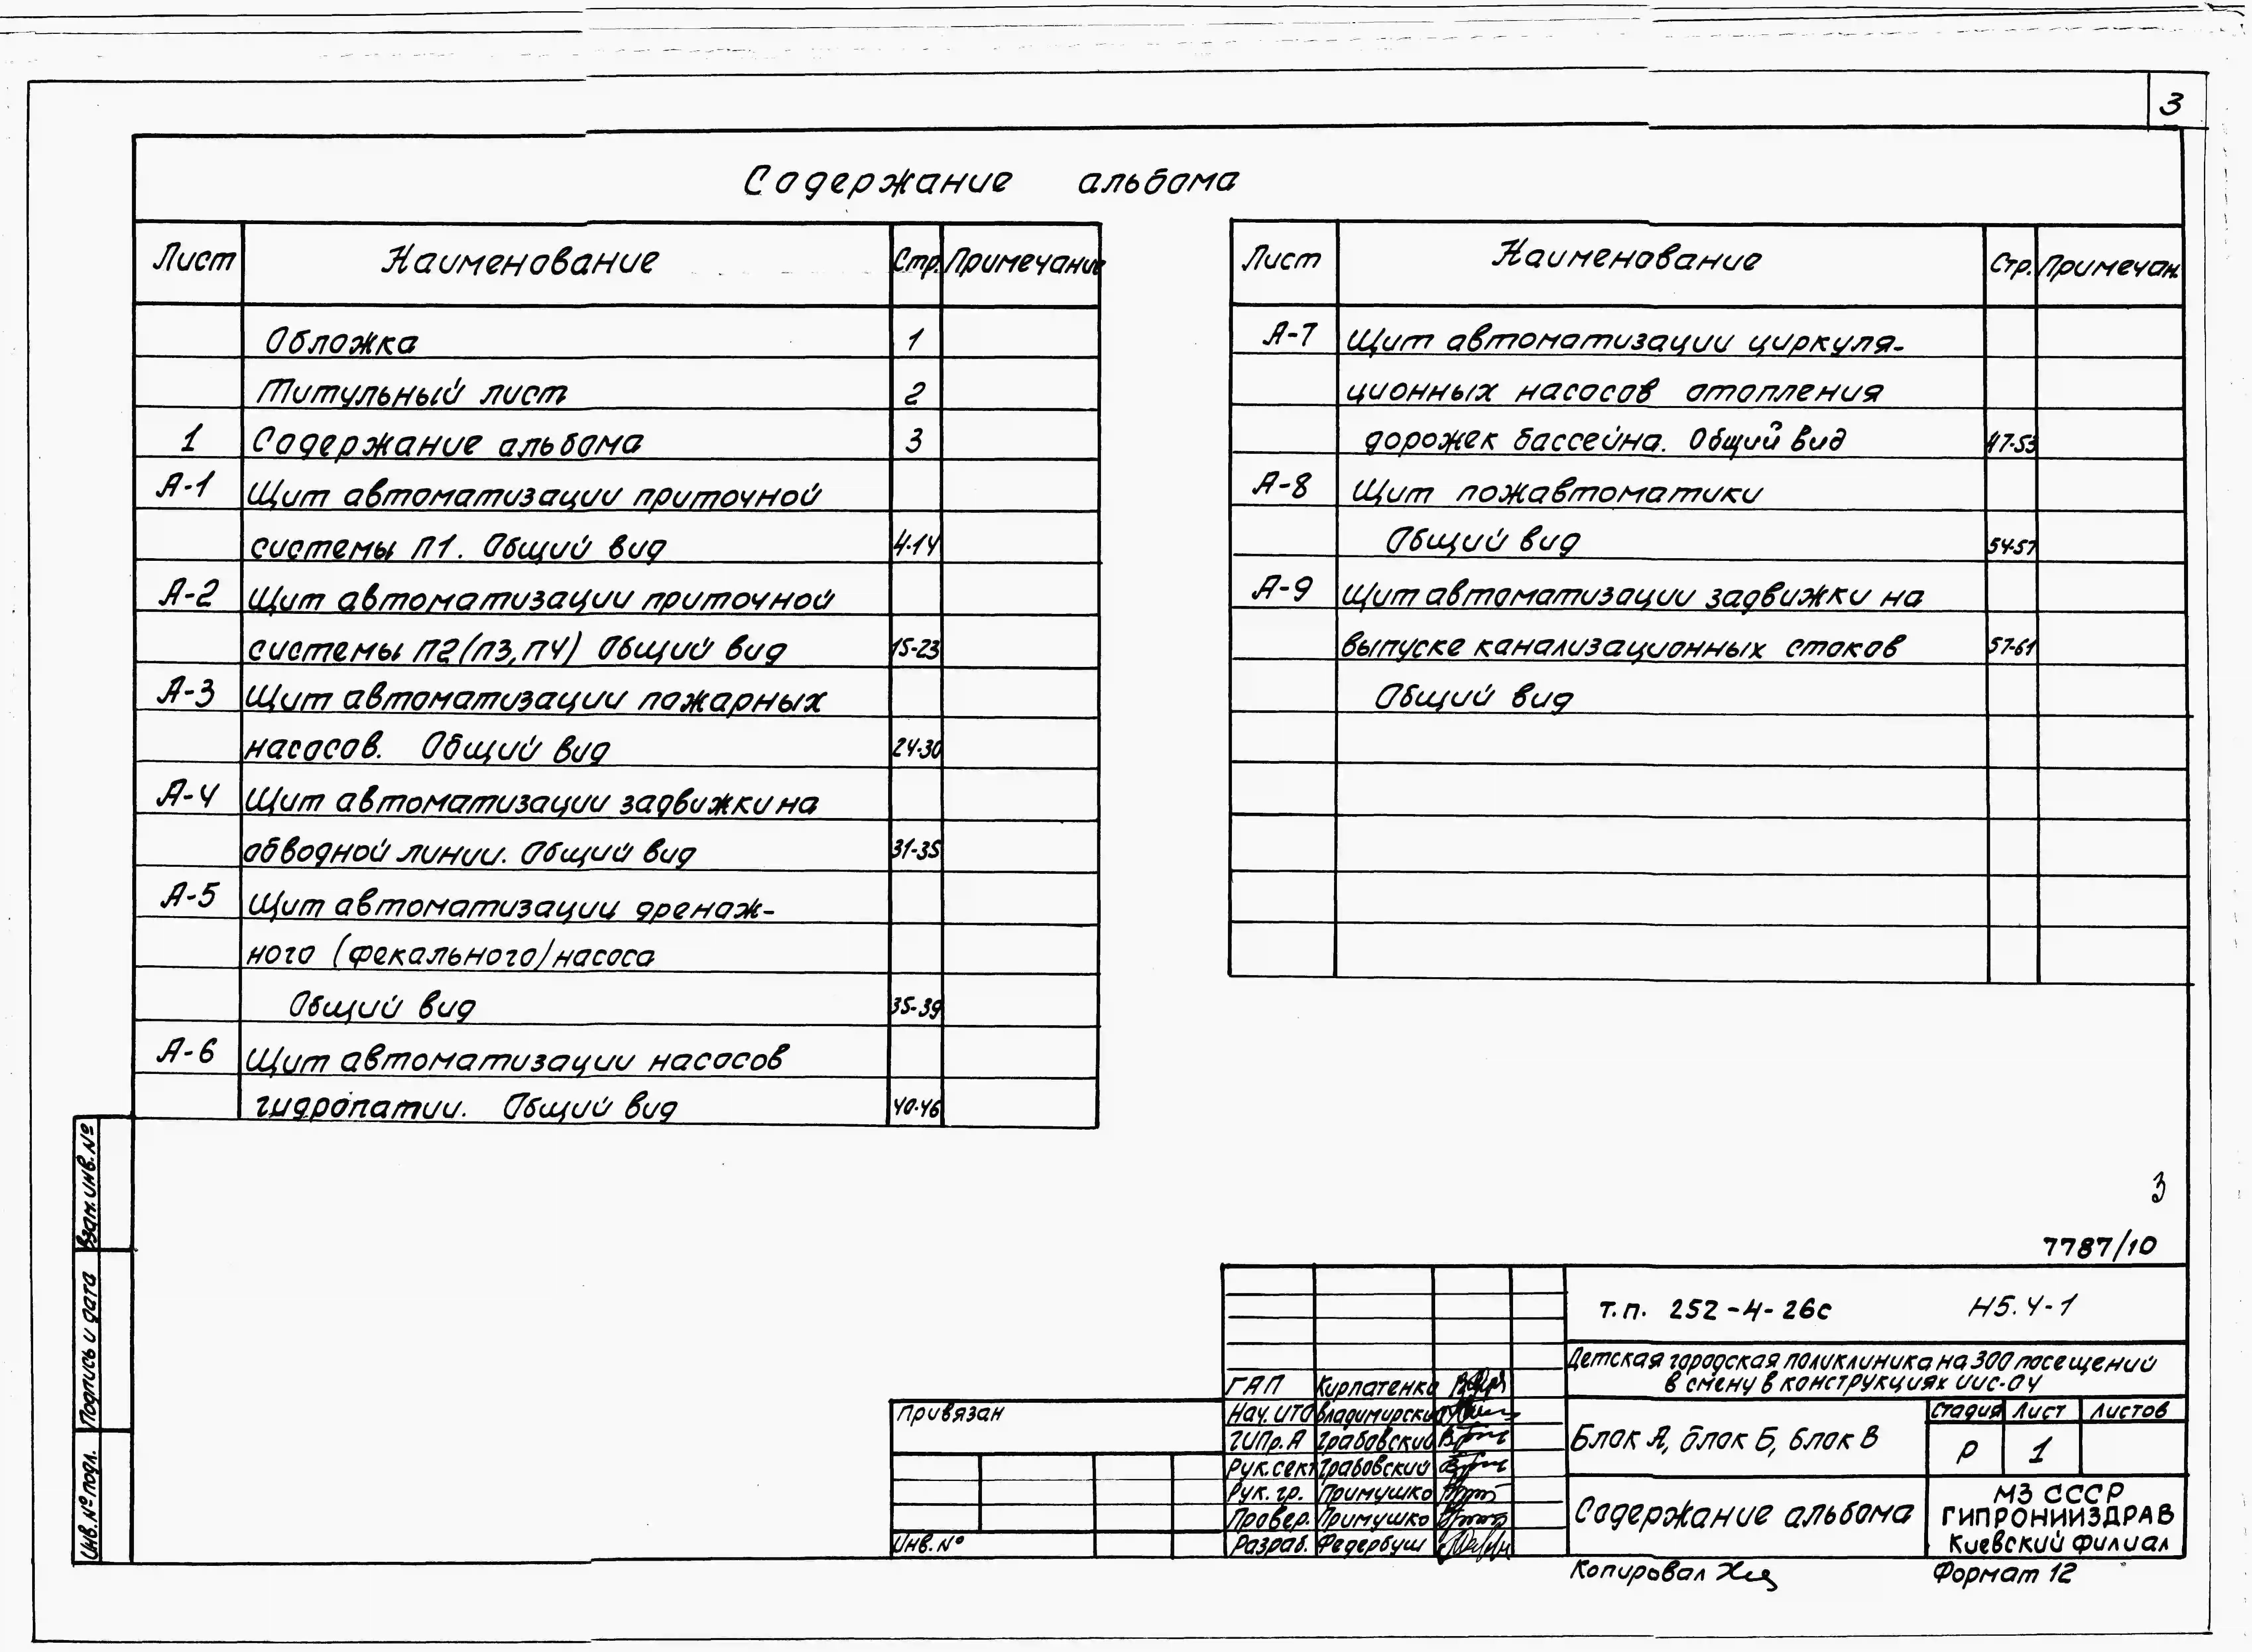 3
Содержание альбома
Лист Наименование Стр. Примечание
Обложка 1
Титульный лист 2
1 Содержание альбома 3
А-1 Щит автоматизации приточной
системы П1. Общий вид 4-14
А-2 Щит автоматизации приточной
системы П2(П3,П4) Общий вид 15-23
А-3 Щит автоматизации пожарных
насосов. Общий вид 24-30
А-4 Щит автоматизации задвижки на
обводной линии. Общий вид 31-35
А-5 Щит автоматизации дренаж-
ного (фекального) насоса
Общий вид 35-39
А-6 Щит автоматизации насосов
гидропатии. Общий вид 40-46
Лист Наименование Стр. Примечан.
А-7 Щит автоматизации циркуля-
ционных насосов отопления
дорожек бассейна. Общий вид 47-53
А-8 Щит пожавтоматики
Общий вид 54-57
А-9 Щит автоматизации задвижки на
выпуске канализационных стоков 57-61
Общий вид
3
7787/10
Т.П. 252-4-26с Н5.4-1
Детская городская поликлиника на 300 посещений
в смену в конструкциях иис-04
Блок А, блок Б, блок В
Стадия Лист Листов
Р 1
Содержание альбома
МЗ СССР
ГИПРОНИИЗДРАВ
Киевский филиал
ГАП Кирпатенко
Нач. ИТО Владимирский
ГИПр.А Грабовский
Рук. сект Грабовский
Рук. гр. Примушко
Провер. Примушко
Разраб. Федербуш
Привязан
Инв. №
Копировал
Формат 12
Взам. инв. №
Подпись и дата
Инв. № подл.